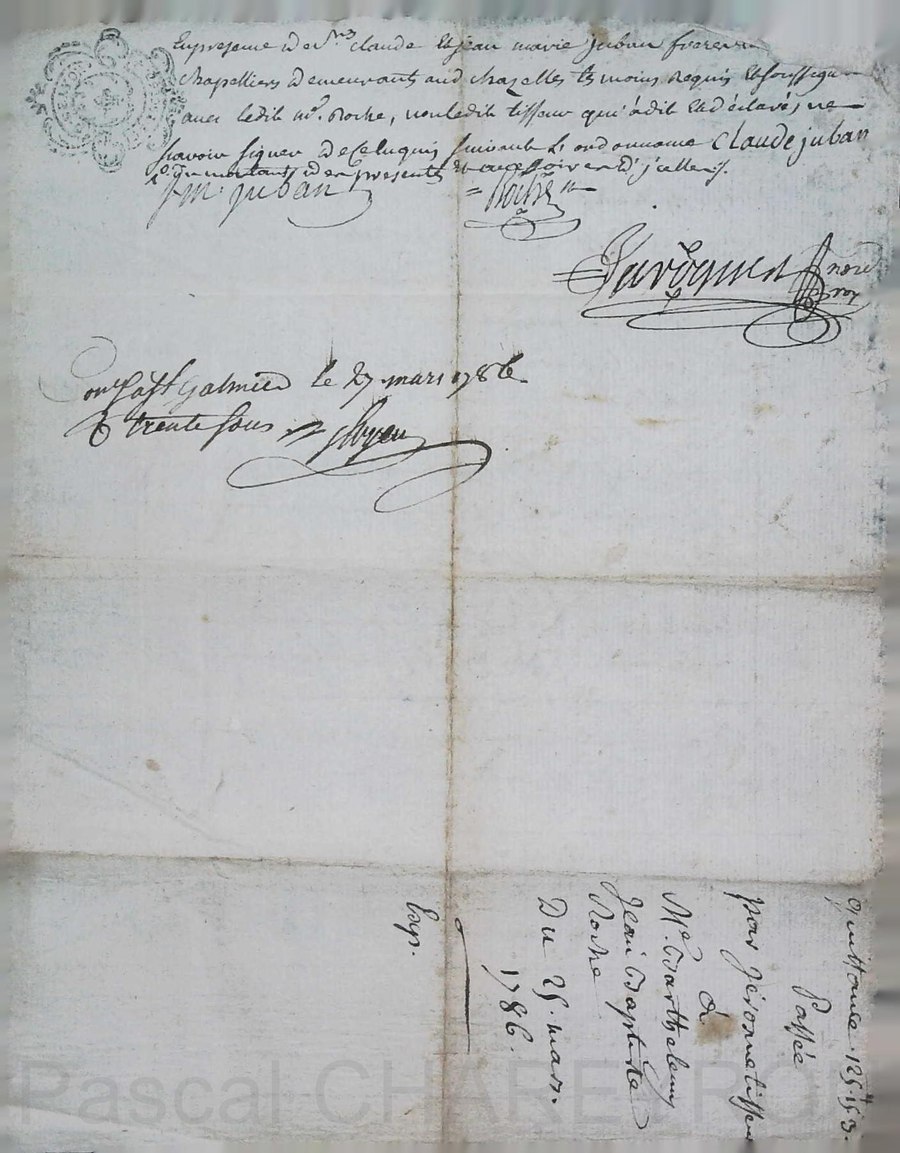 En presence de srs Claude et jean marie juban freres
chapelliers demeurants aud chazelles temoins requis et soussignes
avec ledit mr. Roche, non ledit tisseur qui a dit et declaré, ne
sçavoir signer de ce requis suivant l'ordonnance Claude juban
du montant des presentes et accessoires d'icelles.
jm. juban Roche
nore
roy
St Galmier le 27 mars 1786
trente sous
quittance 125
Passée
par jérosme tisseur
à
Me. Barthelemy
Jean Baptiste
Roche
Du 25. mars.
1786.
Exp.
Pascal CHARE